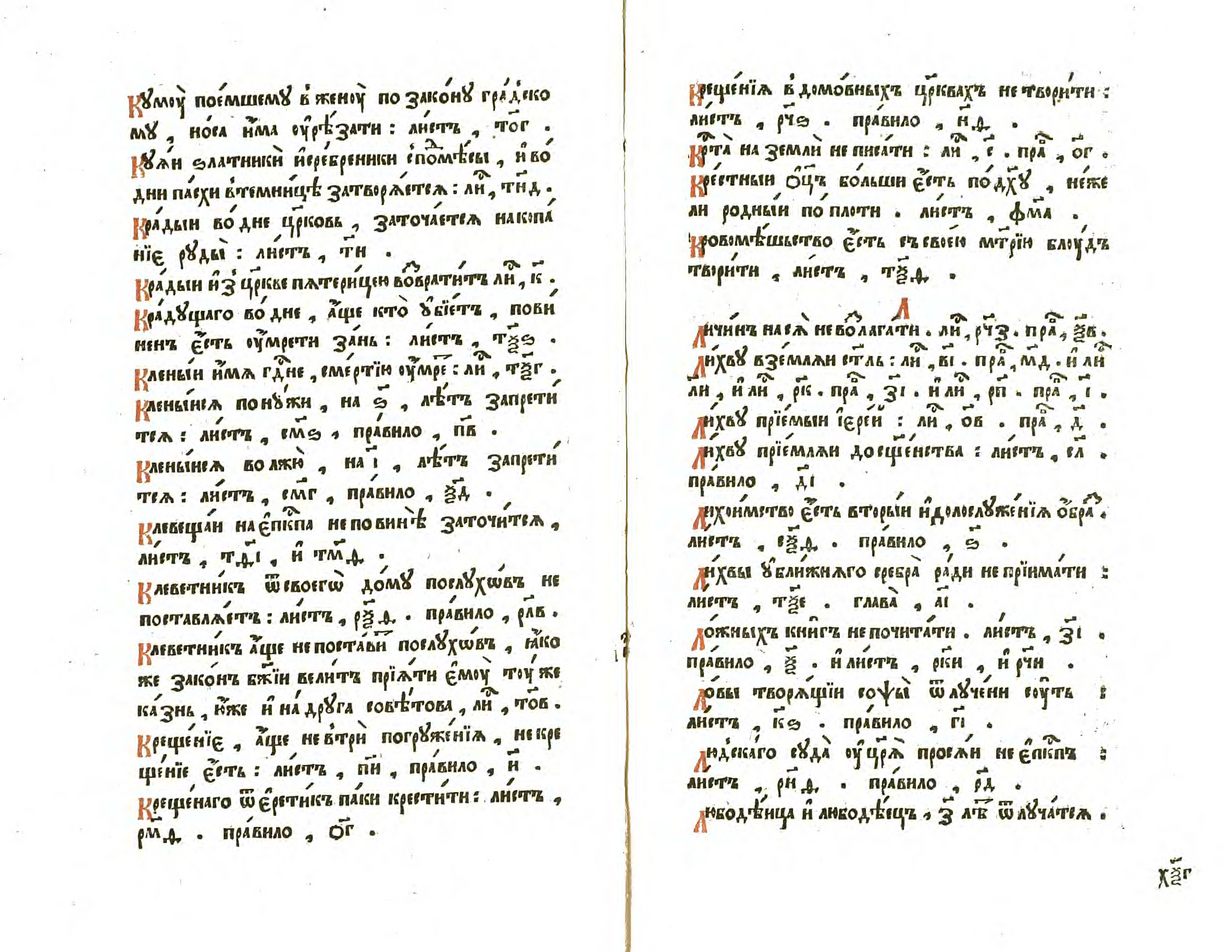 Кумоу̀ пое́мшему в̾ женоу̀ по зако́ну гра́дско
му , но́са и҆́ма оу҆рѣ́зати : ли́стъ , то҃г .
Ку́яи ѕла́тники и҆сре́бреники с̾по́мѣсы , и҆ во
дни па́схи в̾темни́цѣ затворѧ́ется : лиⷭ҇ , тн҃д .
Кра́дыи во́ дне цр҃ковь , заточа́ется на копа́
нїе руды̀ : ли́стъ , тн҃ .
Кра́дыи и҆з̾ цр҃кве пѧтери́цею во́вратитъ лиⷭ҇ , к҃ .
Кра́дущаго во́ дне , а҆́ще кто̀ у҆бїе́тъ , пови́
ненъ є҆́сть оу҆мре́ти за́нь : ли́стъ , тѯ҃ѕ .
Клены́и и҆́мѧ гдⷭ҇не , сме́ртїю оу҆́мре : лиⷭ҇ , тѯ҃г .
Клены́исѧ по ну́жи , на ѕ҃ , лѣ́тъ запрети́
тсѧ : ли́стъ , см҃ѕ , пра́вило , п҃в .
Клены́исѧ во лжю̀ , на і҃ , лѣ́тъ запрети́
тсѧ : ли́стъ , см҃г , пра́вило , ѯ҃д .
Клевеща́и на є҆пⷭ҇кпа не пови́ннѣ заточи́тсѧ ,
ли́стъ , тд҃і , и҆ тм҃д .
Клеветни́къ ѿ своегѡ̀ до́му послу́хѡвъ не
поставлѧ́етъ : ли́стъ , рѯ҃д . пра́вило , рл҃в .
Клеветни́къ а҆́ще не поста́витъ послу́хѡвъ , ꙗ҆́ко
же зако́нъ бж҃їи вели́тъ прїѧ́ти є҆моу̀ тоу́ же
ка́знь , ю҆́же и҆ на дру́га совѣ́това , лиⷭ҇ , то҃в .
Креще́нїе , а҆́ще не в̾трѝ погруже́нїѧ , не кре
ще́нїе є҆́сть : ли́стъ , п҃и , пра́вило , и҃ .
Креще́наго ѿ є҆рети́къ па́ки крести́ти : ли́стъ ,
рм҃д . пра́вило , о҃г .
Креще́нїѧ в̾ домо́вныхъ цр҃квахъ не твори́ти :
ли́стъ , рч҃ѕ . пра́вило , н҃д .
Крⷭ҇та̀ на землѝ не писа́ти : лиⷭ҇ , с҃ . праⷡ҇ , о҃г .
Кре́стныи ѻ҆ц҃ъ бо́льши є҆́сть по́ дх҃у , не́же
ли ро́дныи по пло́ти . ли́стъ , фм҃а .
Кровомѣ́шьство є҆́сть съ свое́ю мт҃рїю блоу́дъ
твори́ти , ли́стъ , тѯ҃д .
Л
Личи́нъ на сѧ̀ не вⸯолага́ти . лиⷭ҇ , рч҃з . праⷡ҇ , ѯ҃в .
Ли́хву взе́млѧи ст҃ль : лиⷭ҇ , в҃і . праⷡ҇ , м҃д . и҆ лиⷭ҇
ли , и҆ лиⷭ҇ , рк҃ . праⷡ҇ , з҃і . и҆ лиⷭ҇ , рп҃ . праⷡ҇ , і҃ .
Ли́хву прїе́мыи і҆ере́й : лиⷭ҇ , о҃в . праⷡ҇ , д҃ .
Ли́хву прїе́млѧи до сщ҃е́нства : ли́стъ , сл҃ .
пра́вило , д҃і .
Лихои́мство є҆́сть вторы́и и҆долослуже́нїѧ ѻ҆́браⷥ .
ли́стъ , сѯ҃д . пра́вило , ѕ҃ .
Ли́хвы у҆ бли́жнѧго сребра̀ ра́ди не прїима́ти :
ли́стъ , тѯ҃е . глава̀ , а҃і .
Ло́жныхъ кни́гъ не почита́ти . ли́стъ , з҃і .
пра́вило , ѯ҃ . и҆ ли́стъ , рк҃и , и҆ рч҃и .
Ло́вы творѧ́щїи со псы̀ ѿлуче́ни су́ть :
ли́стъ , к҃ѕ . пра́вило , г҃і .
Людска́го суда̀ оу҆ царѧ̀ просѧ́и не є҆пⷭ҇кпъ :
ли́стъ , рн҃д . пра́вило , р҃д .
Любодѣ́ица и҆ любодѣ́ецъ , з҃ лѣⷮ ѿлуча́тсѧ .
хѯ҃г